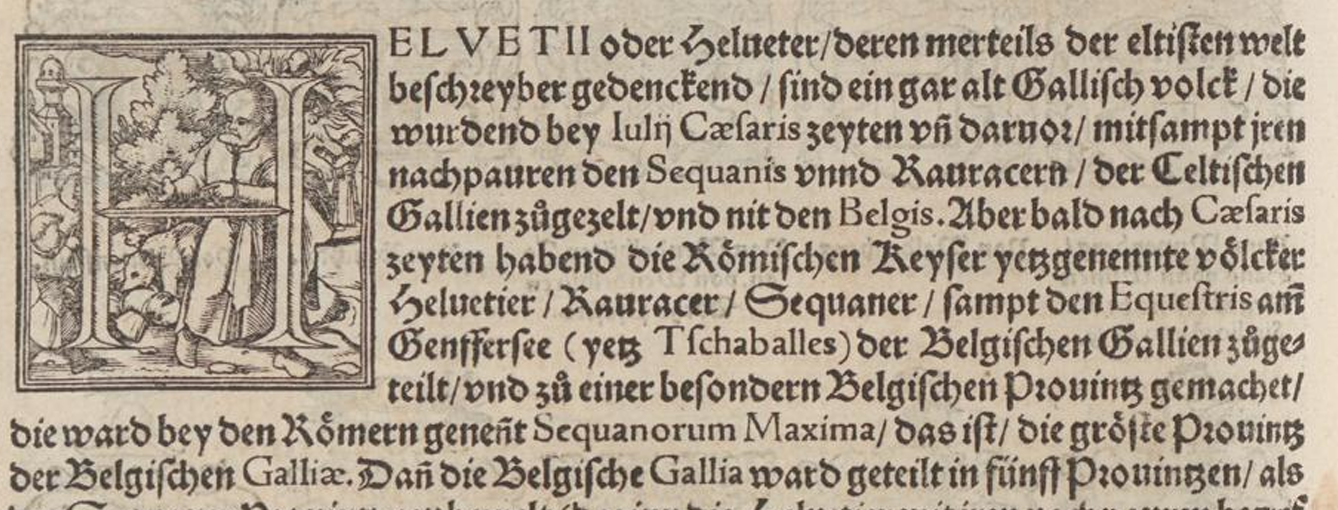 HELVETII oder Helueter/deren merteils der eltiſten welt
beſchreyber gedenckend / ſind ein gar alt Galliſch volck / die
wurdend bey Iulij Cæſaris zeyten vñ daruor/ mitſampt jren
nachpauren den Sequanis vnnd Rauracern / der Celtiſchen
Gallien zůgezelt/vnd nit den Belgis. Aber bald nach Cæſaris
zeyten habend die Römiſchen Keyſer yetzgenennte völcker
Heluetier / Rauracer / Sequaner / ſampt den Equeſtris am̃
Genfferſee (yetz Tſchaballes) der Belgiſchen Gallien zůge⸗
teilt/vnd zů einer beſondern Belgiſchen Prouintz gemachet/
die ward bey den Römern geneñt Sequanorum Maxima/ das iſt/ die gröſte Prouintz
der Belgiſchen Galliæ. Dañ die Belgiſche Gallia ward geteilt in fünff Prouintzen/ als